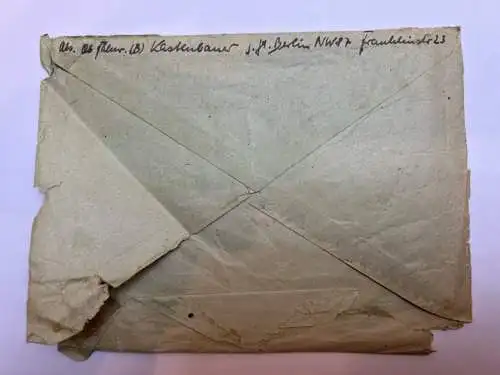 Abs. Lt. (B) Kestenbauer z. Zt. Berlin NW87 Franklinstr 23